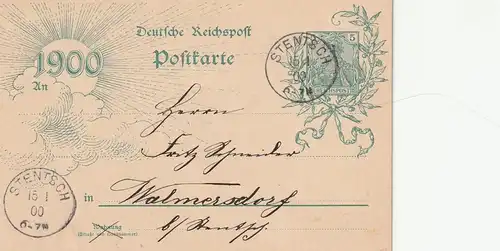 Deutsche Reichspost
Postkarte
1900
An
5
STENTSCH
15 1
00
6-7N
REICHSPOST
Herrn
Fritz Schneider
STENTSCH
15 1
00
6-7N
in Walmersdorf
Wohnung
(Straße und Hausnummer)
b/Stentsch.